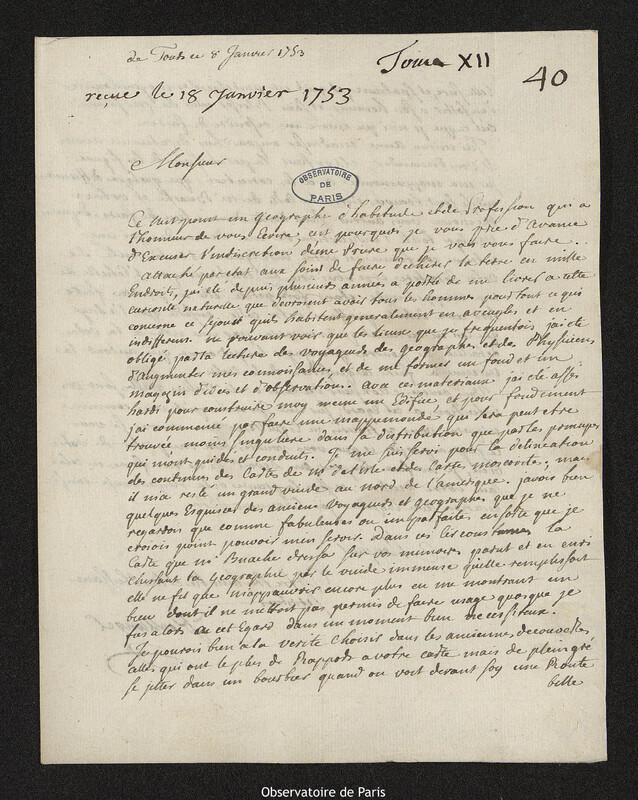 de Tours ce 8 Janvier 1753
Tome XII
40
reçue le 18 Janvier 1753
Monsieur
OBSERVATOIRE
DE
PARIS
Ce n'est point un geographe d'habitude et de Profession qui a
l'honneur de vous Ecrire, cest pourquoi je vous prie d'avance
d'Excuser l'indiscretion d'une Priere que je vais vous faire..
attaché par etat aux soins de faire la terre en mille
Endroits, jai eté depuis plusieurs années a portée de me livrer a cette
curiosité naturelle que devroient avoir tous les hommes pour tout ce qui
concerne ce sejour quils habitent generalement en aveugles et en
indifferens. ne pouvant voir que les lieux que je frequentois jai eté
obligé par la lecture des voyageurs des geographes et des Physiciens
d'augmenter mes connoissances, et de me former un fond et un
magazin d'idées et d'observations. avec ces materiaux jai eté assés
hardi pour construire moy meme un Edifice et pour fondement
jai commencé par faire une mappemonde qui sera peut etre
trouvée moins singuliere dans sa distribution que par les
qui m'ont guidés et conduits. Je me suis servi pour la delineation
des contours des Cartes de Mr. de l'isle et des Cartes moscovites; mais
il m'a resté un grand vuide au nord de l'amerique. javois bien
quelques Esquisses des anciens voyageurs et geographes que je ne
regardois que comme fabuleuses ou imparfaites ensorte que je
croiois point pouvoir men servir. Dans ces circonstances la
Carte que m. Buache dressa sur vos memoires parut et en enri
chissant la Geographie par le vuide immense quelle remplissoit
elle ne fit que m'appauvrir encore plus en me montrant un
bien dont il ne mettoit pas permis de faire usage quoique je
fus alors a cet Egard dans un moment bien necessiteux.
Je pourois bien a la verité choisir dans les anciennes decouvertes
celles qui ont le plus de Rapports a votre carte mais de plein gré
se jetter dans un bourbier quand on voit devant soy une Route
belle
Observatoire de Paris